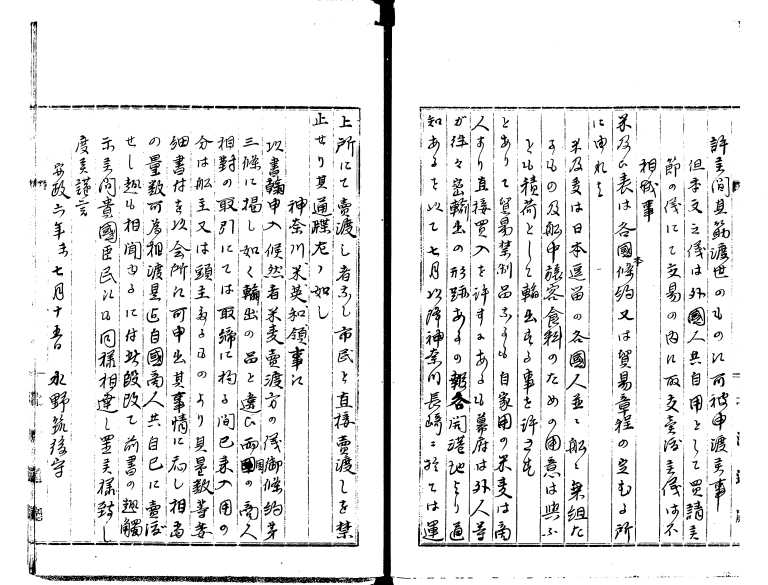 許候間其筋渡世のものに可被申渡候事
但本文之儀は外國人共自用として買請候
節の儀にて交易の内に取交賣渡候儀は不
相成事
米及ひ麦は各國條約本又は貿易章程の定むる所
に由れは
米及麦は日本逗留の各國人並に船に乗組た
るもの及船中旅客食料のための用意は與ふ
とも積荷として輸出する事を許さす
とありて貿易禁制品なるも自家用の米麦は商
人より直接買入を許すにあるも幕府は外人等
が往々密輸出の形跡あるの報各開港地より通
知あるを以て七月以降神奈川長崎に於ては運
上所にて賣渡し者なし市民と直接賣渡しを禁
止せり其通牒左の如し
神奈川米英和領事に
以書翰申入候然者米麦賣渡方の儀御條約第
三條に掲し如く輸出の品と違ひ両國の商人
相對の取引にては取締に拘る間已来入用の
分は船主又は頭立あるものより其量数等委
細書付を以会所に可申出其事情に応し相當
の量数可為相渡是迄自國商人共自己に賣渡
せし趣も相聞るには此段改て前書の趣觸
示候間貴國臣民にも同様相達し置候様致し
度候謹言
安政六年未七月十五日 永野筑後守